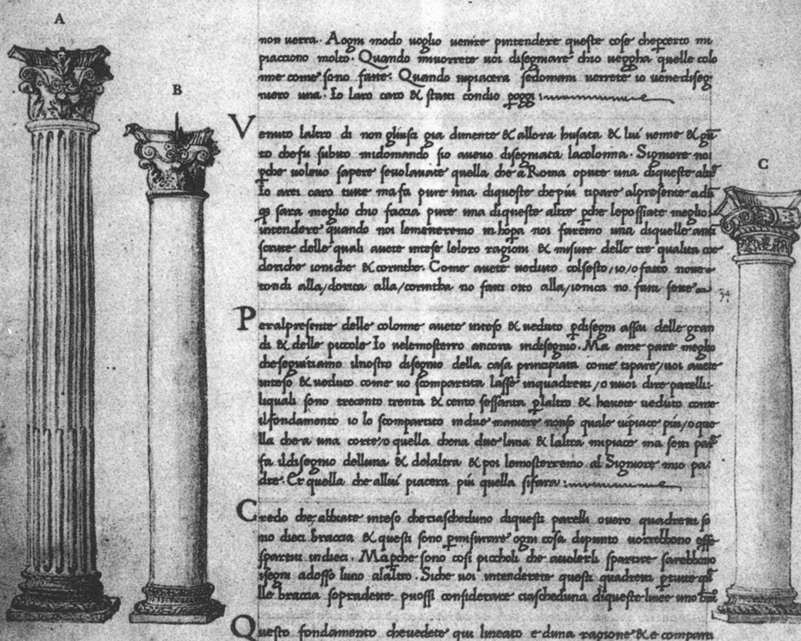 A
B
C
non verra. Aogni modo voglio venire pintendere queste cose chepcerto mi
piacciono molto. Quando mivorrete voi disegniare chio veggha quelle colo
nne come sono fatte. Quando vipiacera sedomani verrete io venediseg
niero una. Io laro caro & stati condio
Venuto laltro di non giunsi gia dimente & allora husata & lui venne &
to chefu subito midomando sio avevo disegniata lacolonna. Signore noi
pche volevo sapere sevolavate quella che a Roma opure una diqueste altre
Io arei caro tutte ma fa pure una diqueste chepiu tipare alpresente
sara meglio chio faccia pure una diqueste altre pche lepossiate meglio
intendere quando noi lemetteremo noi faremo una diquelle anti
scritte delle quali avete intese leloro ragioni & misure delle tre qualita
doriche ioniche & corinthe. Come avete veduto colsesto/io/o fatto nove
tondi alla/dorica alla/corintha no fatti otto alla/ionica no fatti sette
Peralpresente delle colonne avete inteso & veduto pdisegni assai delle gran
di & delle piccole Io velemosterro ancora indisegnio. Ma ame pare meglio
cheseguitiamo ilnostro disegnio della casa principiata come tipare/voi avete
inteso & veduto come vo scompartita lasse inquadretti/o vuoi dire parelli
liquali sono trecento trenta & cento sessanta plaltro & havete veduto come
ilfondamento io lo scompartito indue maniere nonso quale vipiace piu/o que
lla che a una corte/o quella chena due luna & laltra mipiace ma seti pare
fa ildisegnio delluna & delaltra & poi lemosterremo al Signore mio pa
dre. Et quella che allui piacera piu quella sifara
Credo che abbiate inteso checiascheduno diquesti parelli overo quadretti so
no dieci braccia & questi sono pmisurare ogni cosa dipunto vorrebbono esse
spartiti indieci. Mapche sono cosi piccholi che avolerli spartire sarebbono
isegni adosso luno alaltro. Siche voi intenderete questi quadretti
lle braccia sopradette puossi considerare ciascheduna diqueste linee uno
Questo fondamento chevedete qui lineato e duna ragione & e comparti